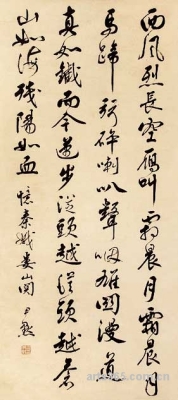 西風烈長空雁叫霜晨月霜晨月
馬蹄聲碎喇叭聲咽雄關漫道
真如鐵而今邁步從頭越從頭越蒼
山如海殘陽如血 憶秦娥婁山關 尹默